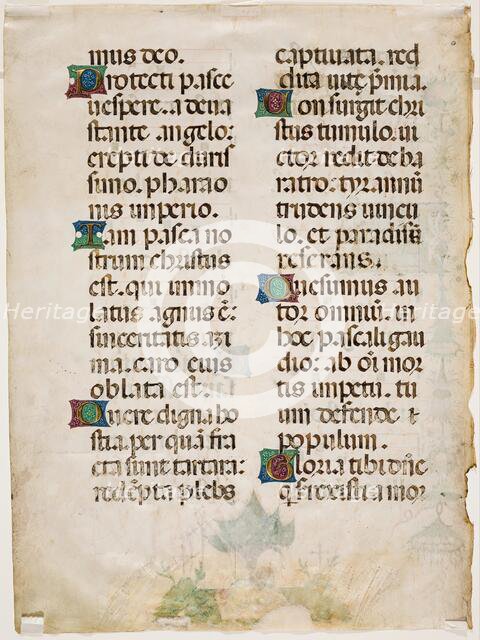 mus deo.
Protecti pasce
uespere. a deua
stante angelo:
erepti de duris
simo. pharao
nis imperio.
Iam pasca no
strum christus
est. qui immo
latus agnus ē:
sinceritatis azi
ma. caro eius
oblata est.
O uere digna ho
stia. per quā fra
cta sunt tartara:
redēpta plebs
captiuata. red
dita uite p̄mia.
Consurgit chri
stus tumulo. ui
ctor redit de ba
ratro: tyrannū
trudens uincu
lo. et paradisū
reserans.
Quesumus au
tor omniū. in
hoc pascali gau
dio: ab oī mor
tis impetu. tu
um defende &
populum.
Gloria tibi dn̄e
q̇ surrexisti a mor
Heritage
Heritage